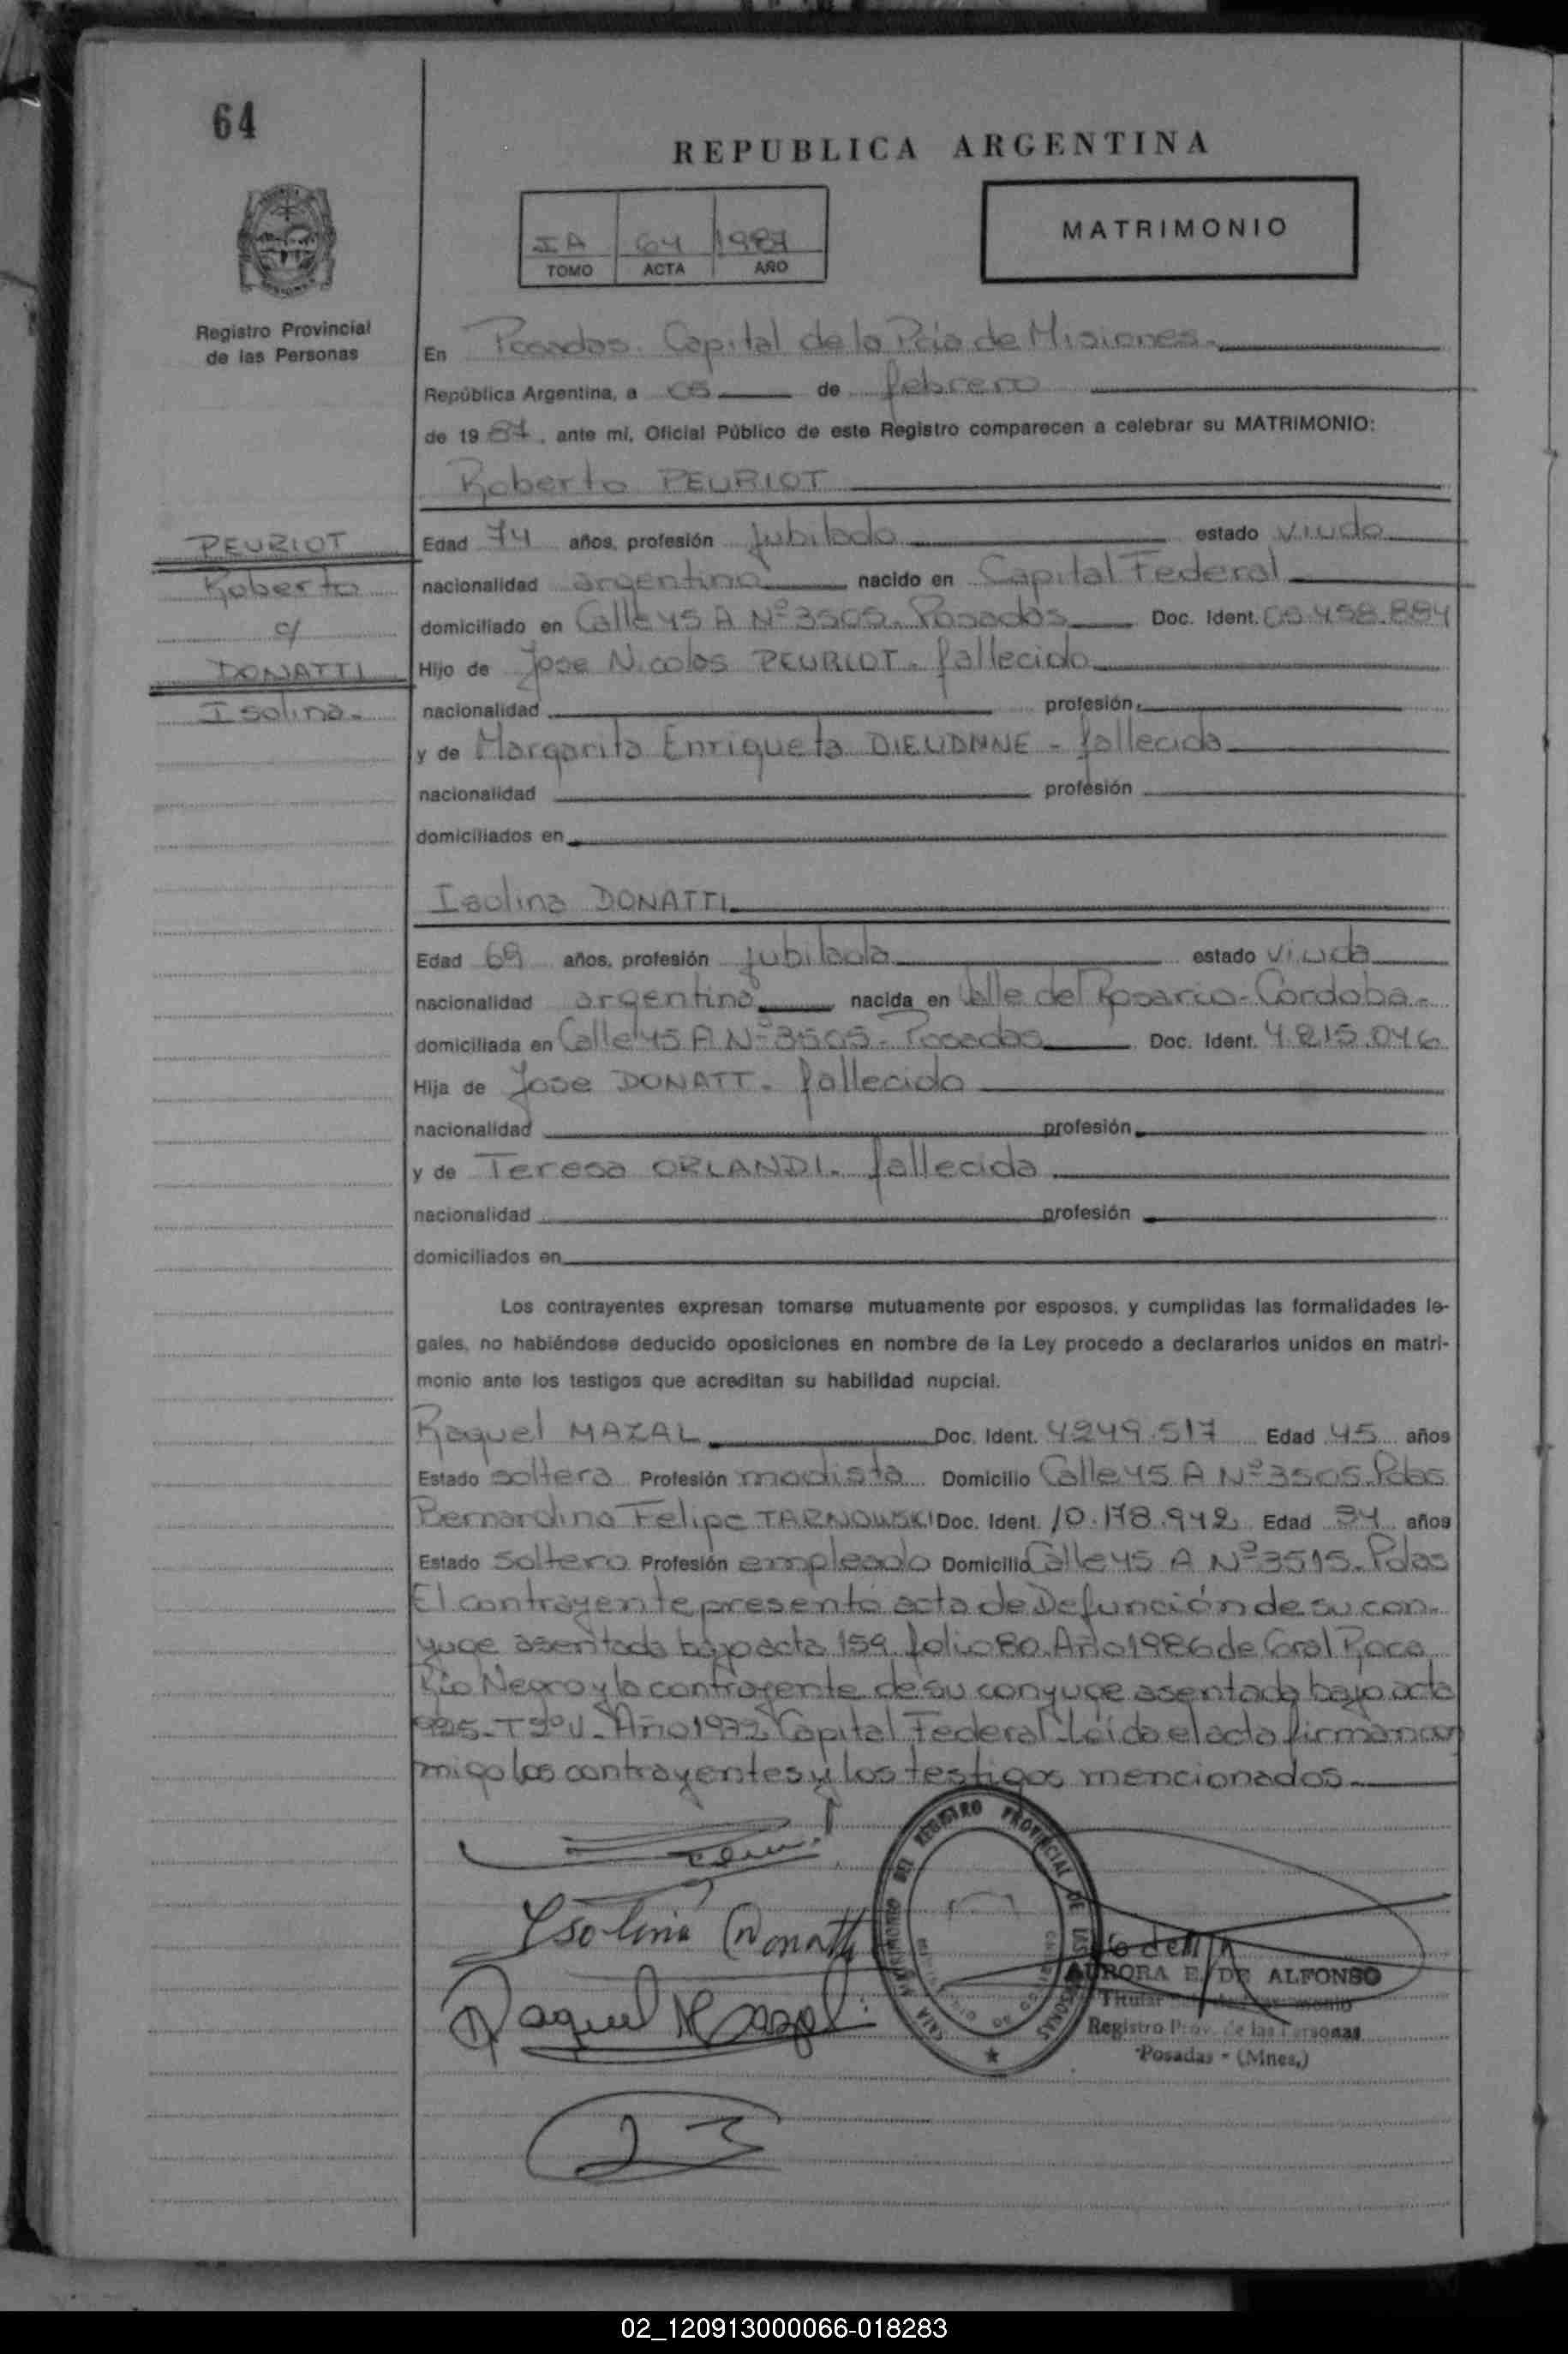 64
REPUBLICA ARGENTINA
IA 64 1987
TOMO ACTA AÑO
MATRIMONIO
Registro Provincial
de las Personas
En Posadas. Capital de la Pcia de Misiones.
República Argentina, a 05 de febrero
de 1987, ante mí, Oficial Público de este Registro comparecen a celebrar su MATRIMONIO:
Roberto PEURIOT
PEURIOT
Roberto
c/
DONATTI
Isolina.
Edad 74 años, profesión Jubilado estado viudo
nacionalidad argentina nacido en Capital Federal
domiciliado en Calle 45 A Nº 3505. Posadas Doc. Ident. 05.458.884
Hijo de Jose Nicolas PEURIOT. fallecido
nacionalidad profesión
y de Margarita Enriqueta DIEUDNNE - fallecida
nacionalidad profesión
domiciliados en
Isolina DONATTI
Edad 69 años, profesión jubilada estado viuda
nacionalidad argentina nacida en Valle del Rosario - Cordoba -
domiciliada en Calle 45 A Nº 3505. Posadas Doc. Ident. 4.215.046
Hija de Jose DONATT. fallecido
nacionalidad profesión
y de Teresa ORLANDI. fallecida
nacionalidad profesión
domiciliados en
Los contrayentes expresan tomarse mutuamente por esposos, y cumplidas las formalidades le-
gales, no habiéndose deducido oposiciones en nombre de la Ley procedo a declararlos unidos en matri-
monio ante los testigos que acreditan su habilidad nupcial.
Raquel MAZAL Doc. Ident. 4249.517 Edad 45 años
Estado soltera Profesión modista Domicilio Calle 45 A Nº 3505. Pdas
Bernardino Felipe TARNOWSKI Doc. Ident. 10.178.942 Edad 34 años
Estado soltero Profesión empleado Domicilio Calle 45 A Nº 3515. Pdas
El contrayente presentó acta de Defunción de su con-
yuge asentada bajo acta 159. folio 80. Año 1986 de Gral Roca
Rio Negro y la contrayente de su conyuge asentada bajo acta
925- T 3º U. Año 1972 Capital Federal - Leída el acta firman con
migo los contrayentes y los testigos mencionados.
Isolina Donatti
Raquel Mazal
DEL REGISTRO PROVINCIAL DE LAS PERSONAS
AURORA E. DE ALFONSO
Titular
Registro Prov. de las Personas
Posadas - (Mnes.)
02_120913000066-018283